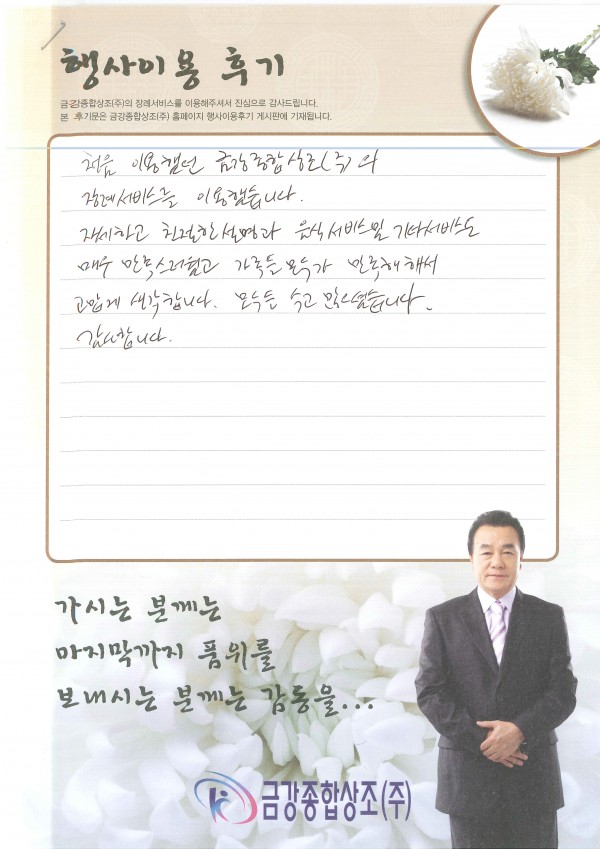 행사이용 후기
금강종합상조(주)의 장례서비스를 이용해주셔서 진심으로 감사드립니다.
본 후기문은 금강종합상조(주) 홈페이지 행사이용후기 게시판에 기재됩니다.
처음 이용했던 금강종합상조(주)의
장례서비스를 이용했습니다.
자세하고 친절한 설명과 음식서비스및 기타서비스도
매우 만족스러웠고 가족들 모두가 만족해해서
고맙게 생각합니다. 모두들 수고 많으셨습니다.
감사합니다.
가시는 분께는
마지막까지 품위를
보내시는 분께는 감동을...
금강종합상조(주)